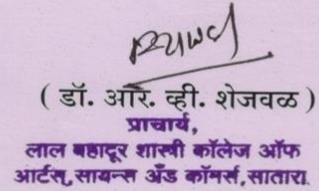 ( डॉ. आर. व्ही. शेजवळ )
प्राचार्य,
लाल बहादूर शास्त्री कॉलेज ऑफ
आर्टस्, सायन्स अँड कॉमर्स, सातारा.